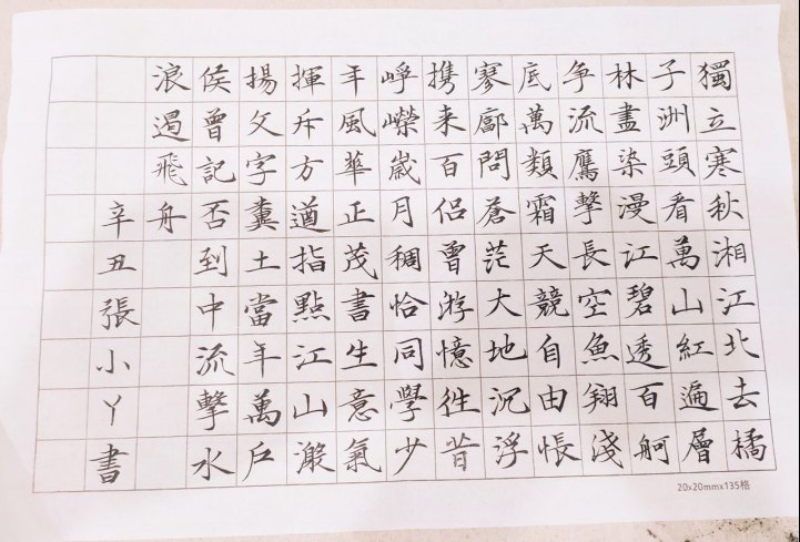 獨立寒秋湘江北去橘
子洲頭看萬山紅遍層
林盡染漫江碧透百舸
争流鷹擊長空魚翔淺
底萬類霜天競自由悵
寥廓問蒼茫大地沉浮
携来百侣曾游憶往昔
崢嶸歲月稠恰同學少
年風華正茂書生意氣
揮斥方遒指點江山激
揚文字糞土當年萬户
侯曾記否到中流擊水
浪遏飛舟
辛丑張小丫書
20x20mmx135格